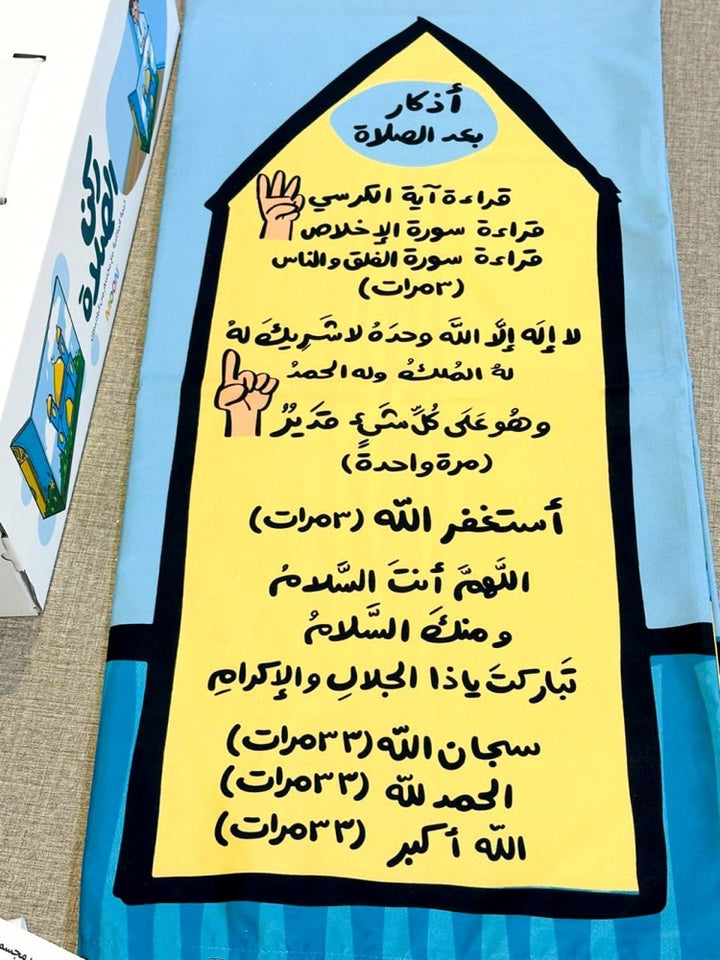 أذكار
بعد الصلاة
قراءة آية الكرسي
قراءة سورة الإخلاص
قراءة سورة الفلق والناس
(٣مرات)
لا إِلَه إِلَّا اللَّه وحدَهُ لا شَرِيكَ لهُ
لهُ المُلكُ وله الحمدُ
وهُو عَلَى كُلِّ شَيءٍ قَدَيرٌ
(مرة واحدة)
أستغفر اللّه (٣مرات)
اللَّهمَّ أنتَ السَّلامُ
ومنكَ السَّلامُ
تَباركتَ ياذا الجلالِ والإكرامِ
سبحان اللّه (٣٣مرات)
الحمد للّه (٣٣مرات)
اللّه أكبر (٣٣مرات)
ركن
الصلاة